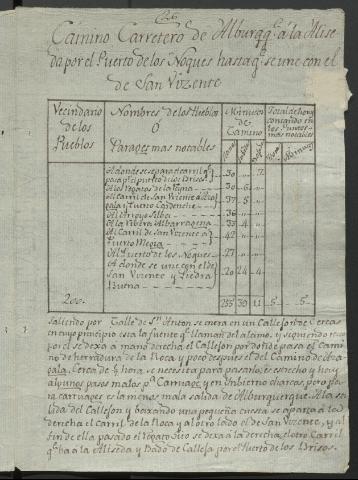 Camino Carretero de Alburqq.e á la Alise
da por el Puerto de los Noques hasta q.e se une con el
de San Vizente
Vecindario de los Pueblos
Nombres de los Pueblos ó Parages mas notables
Minutos de Camino
Total de horas contando en los Puntos mas notables
A donde se separa de carril q.e
pasa p.r el puerto de los Brisos 30 " 7
A los
Al Carril de San Vicente 37 5 "
Al Arroyo Alba 36 " "
A la Rivera Albarragena 33 4 "
Al Carril de San Vizente á 42 " "
Al Puerto de los Noques 27 " "
A donde se une con el de
San Vizente y Piedra
Buena 20 24 4
200. 255 30 11 5 5
Saliendo por Calle de S.n Anton se entra en un Callejon de Cercas
en cuyo principio esta la fuente q.e llaman del alamo, y siguiendo
por el se dexa a mano derecha el Callejon por donde pasa el Cami
no de herradura de la Roca y poco despues el del Camino de
Cerca de 1/4 hora se necesita para pasarlo: es estrecho y hay
algunos pasos malos p.a Carruage y en Imbierno charcos, pero pa
ra carruages es la menos mala salida de Alburquerque. A la sa
lida del Callejon y baxando una pequeña cuesta se aparta a la
derecha el carril de la Roca y al otro lado el de San Vizente, y al
fin de ella pasado el se dexa á la derecha el otro Carril
q.e ba a la Aliseda y Bado de Calleja por el Puerto de los Brisos.